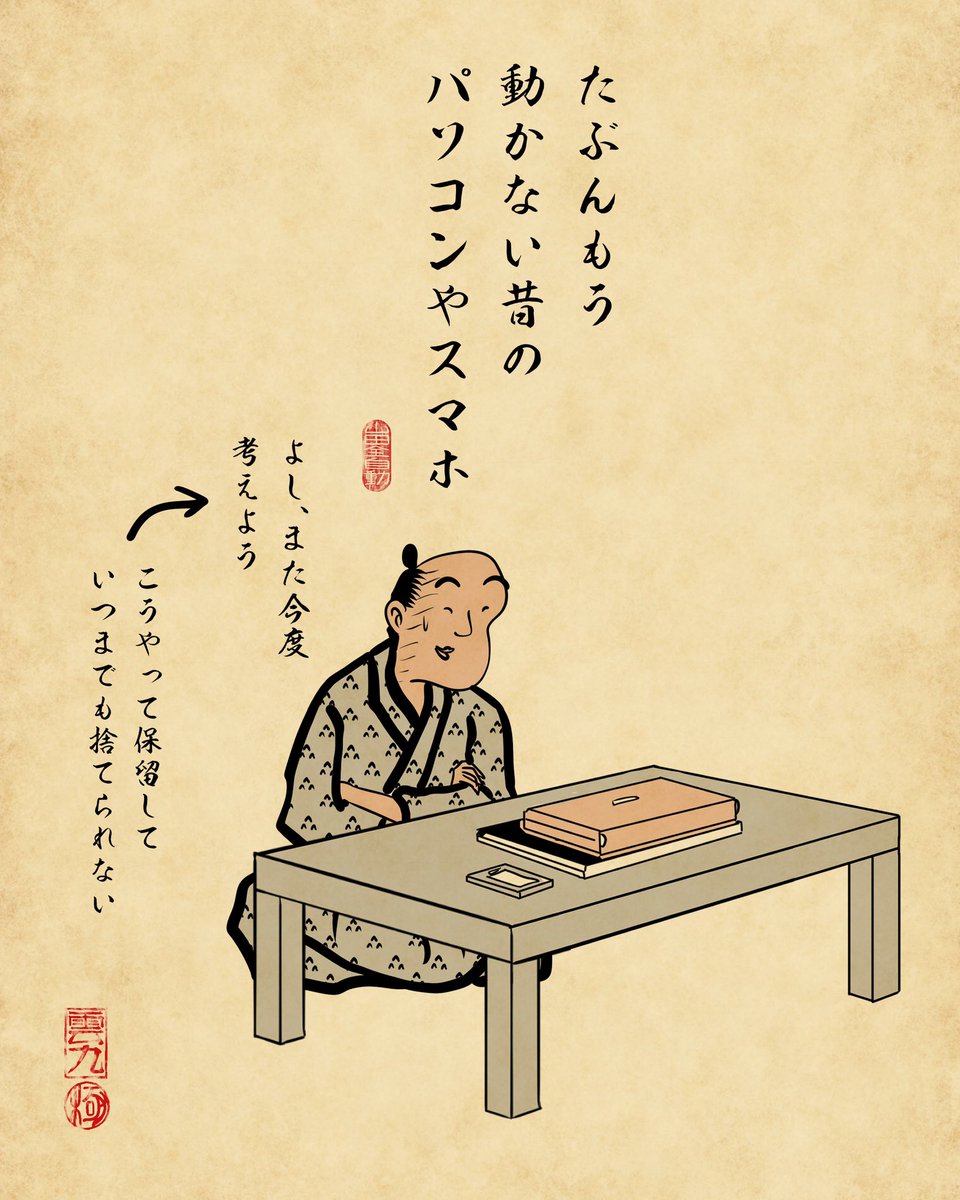 たぶんもう
動かない昔の
パソコンやスマホ
よし、また今度
考えよう
こうやって保留して
いつまでも捨てられない